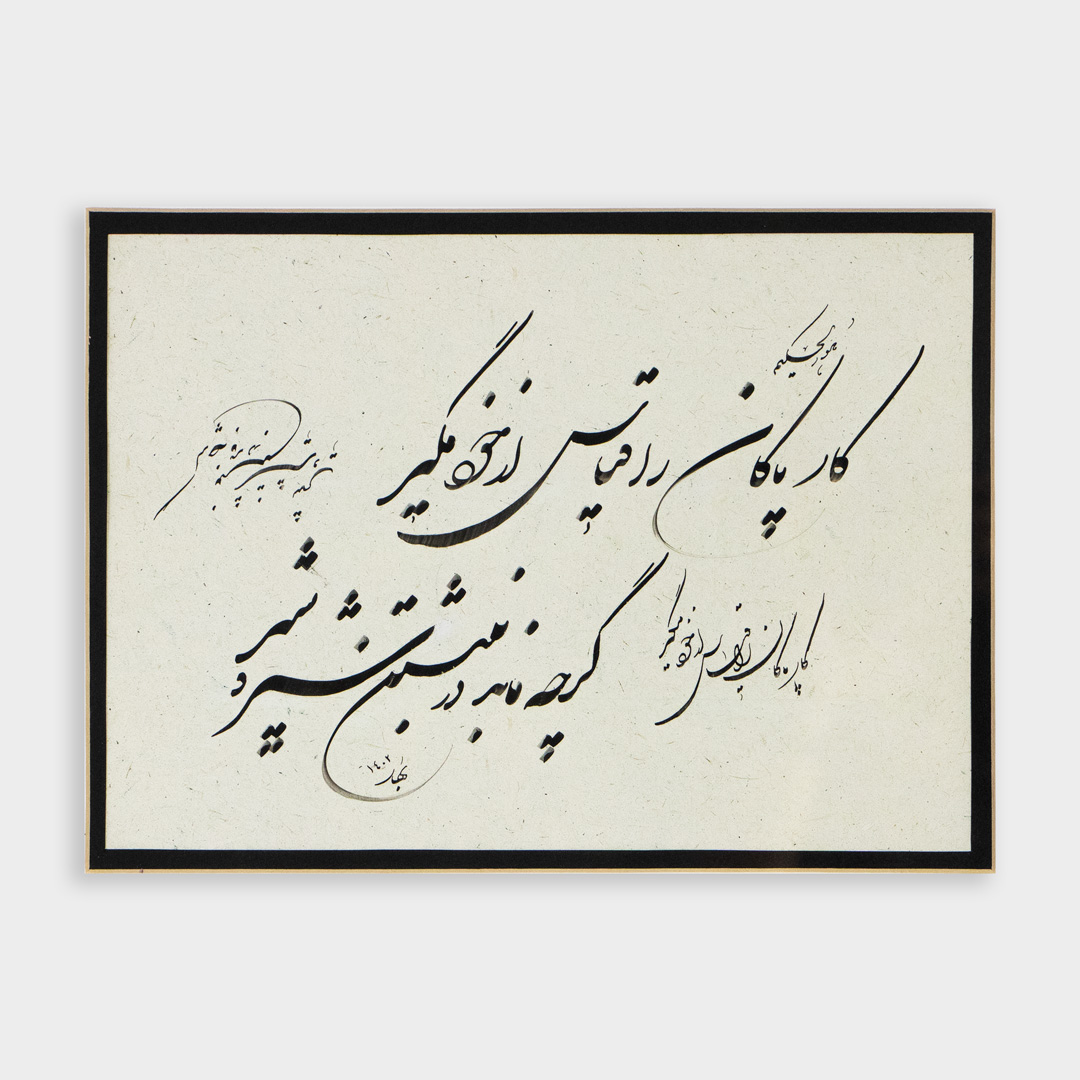 هوالحکیم
کار پاکان را قیاس از خود مگیر
گرچه ماند در نبشتن شیر و شیر
کار پاکان را قیاس از خود مگیر
بهار ۱۴۰۲